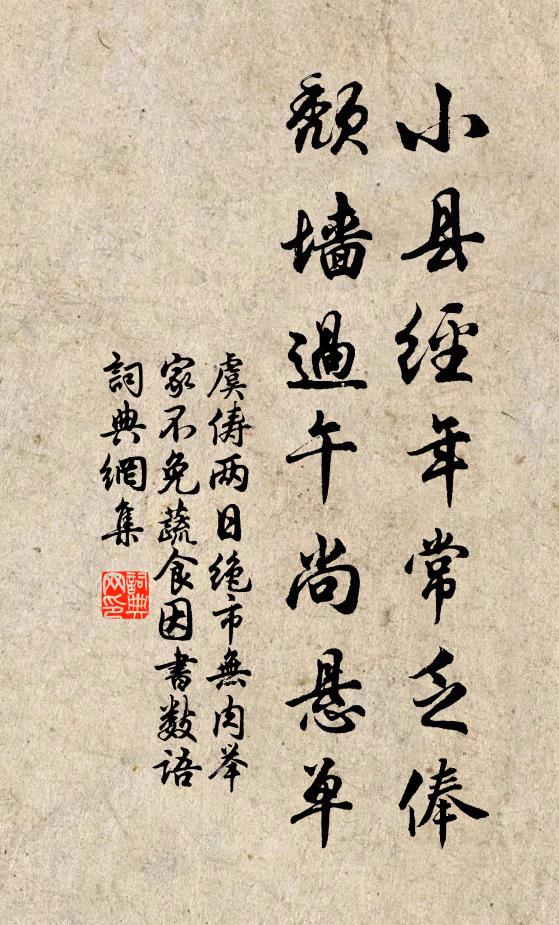 小县經年常乏俸
頹墙過午尚悬单
虞俦两日絶市無肉举
家不免蔬食因書数语
詞典網集
詞典
网印